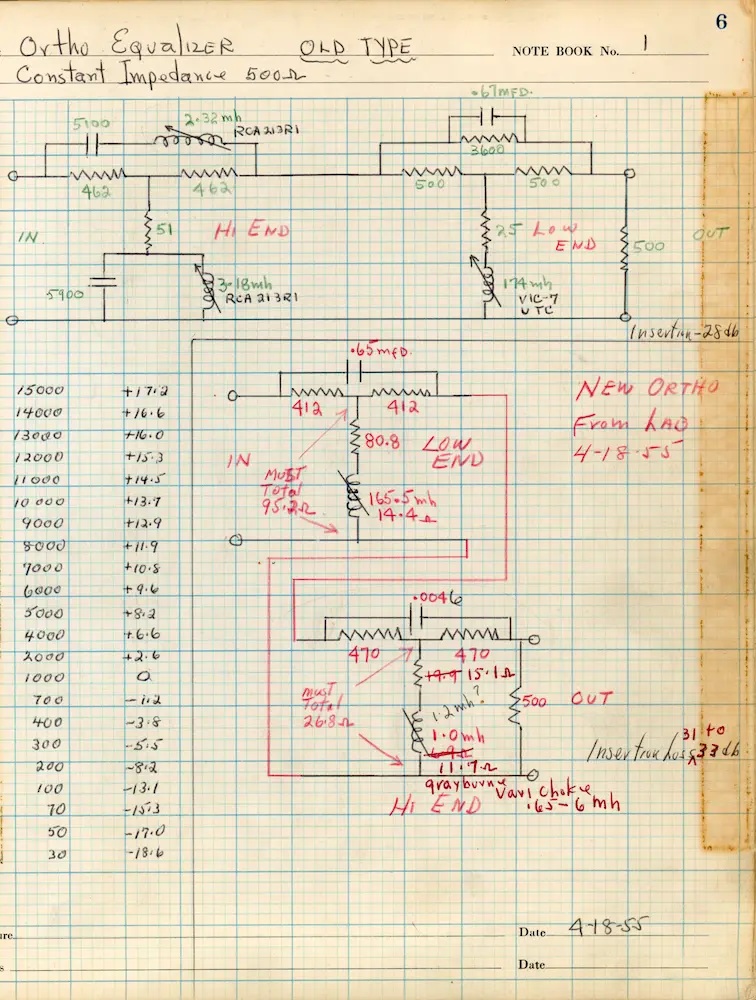 6
Ortho Equalizer OLD TYPE NOTE BOOK No. 1
Constant Impedance 500Ω
.67MFD.
5100 2.32mh
RCA 213R1
3600
462 462 500 500
IN 51 HI END 25 LOW END 500 OUT
5900 3.18mh
RCA 213R1
174mh
VIC-7
UTC
Insertion-28db
.65MFD.
412 412
NEW ORTHO
From LAB
4-18-55
80.8 LOW END
IN
Must
Total
95.2Ω
165.5mh
14.4Ω
15000 +17.2
14000 +16.6
13000 +16.0
12000 +15.3
11000 +14.5
10000 +13.7
9000 +12.9
8000 +11.9
7000 +10.8
6000 +9.6
5000 +8.2
4000 +6.6
2000 +2.6
1000 0
700 -1.2
400 -3.8
300 -5.5
200 -8.2
100 -13.1
70 -15.3
50 -17.0
30 -18.6
.0046
470 470
19.9 15.1Ω
must
Total
26.8Ω
1.2mh?
1.0mh
6.9Ω
11.7Ω
500 OUT
Insertion Loss 31 to 33 db
grayburne Vari Choke
.165-6 mh
HI END
ure
Date 4-18-55
s
Date